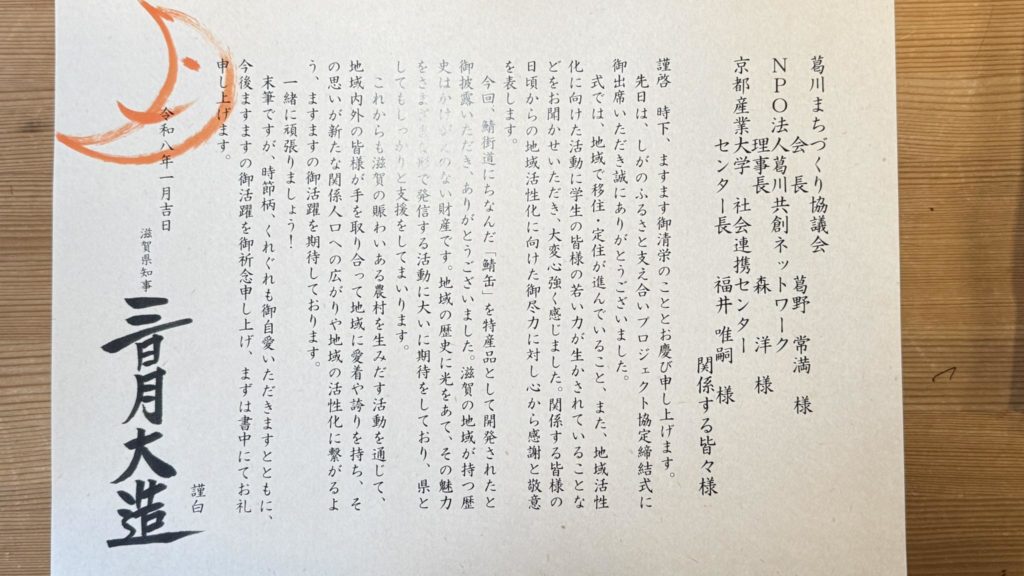 葛川まちづくり協議会
会　長　　葛野　常満　様
NPO法人葛川共創ネットワーク
理事長　　森　　洋　様
京都産業大学　社会連携センター
センター長　福井　唯嗣　様
関係する皆々様
謹啓　時下、ますます御清栄のこととお慶び申し上げます。
先日は、しがのふるさと支え合いプロジェクト協定締結式に
御出席いただき誠にありがとうございました。
式では、地域で移住・定住が進んでいること、また、地域活性
化に向けた活動に学生の皆様の若い力が生かされていることな
どをお聞かせいただき、大変心強く感じました。関係する皆様の
日頃からの地域活性化に向けた御尽力に対し心から感謝と敬意
を表します。
今回、鯖街道にちなんだ「鯖缶」を特産品として開発されたと
御披露いただき、ありがとうございました。滋賀の地域が持つ歴
史はかけがえのない財産です。地域の歴史に光をあて、その魅力
をさまざまな形で発信する活動に大いに期待をしており、県と
してもしっかりと支援をしてまいります。
これからも滋賀の賑わいある農村を生みだす活動を通じて、
地域内外の皆様が手を取り合って地域に愛着や誇りを持ち、そ
の思いが新たな関係人口への広がりや地域の活性化に繋がるよ
う、ますますの御活躍を期待しております。
一緒に頑張りましょう！
末筆ですが、時節柄、くれぐれも御自愛いただきますとともに、
今後ますますの御活躍を御祈念申し上げ、まずは書中にてお礼
申し上げます。
謹白
令和八年一月吉日
滋賀県知事
三日月大造